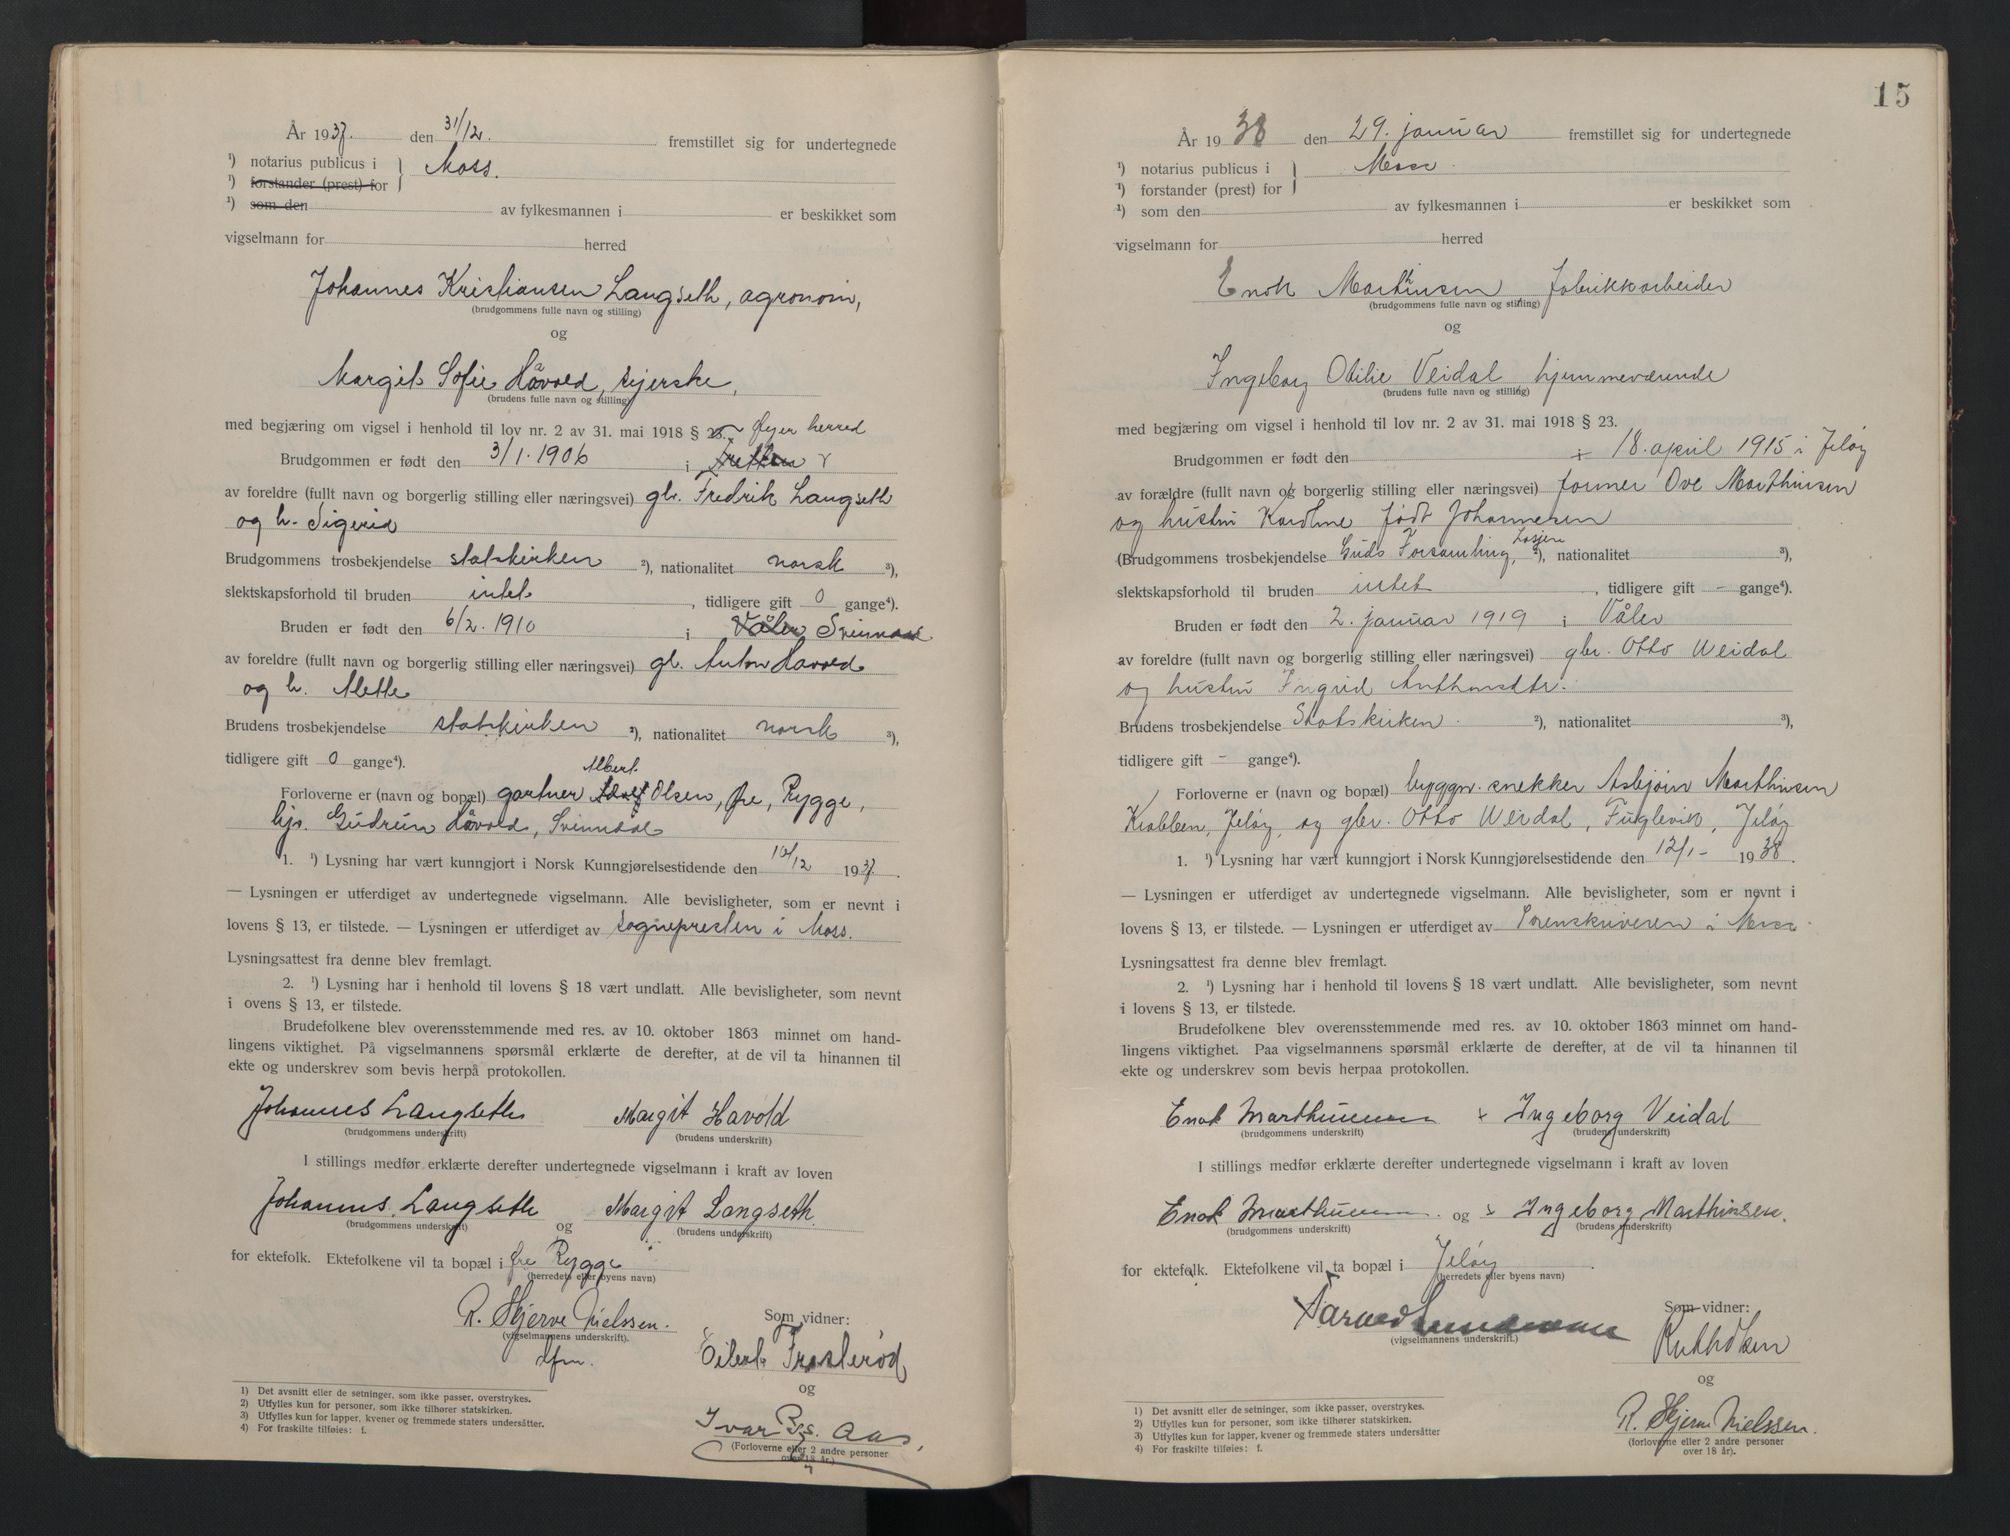 År 1937. den 31/12. fremstillet sig for undertegnede
¹) notarius publicus i } Moss.
¹) forstander (prest) for
¹) som den av fylkesmannen i er beskikket som
vigselmann for herred
Johannes Kristiansen Langseth, agronom,
(brudgommens fulle navn og stilling)
og
Margit Sofie Håvold, syerske,
(brudens fulle navn og stilling)
med begjæring om vigsel i henhold til lov nr. 2 av 31. mai 1918 § 23. Øyer herred
Brudgommen er født den 3/1. 1906 i Tretten
av foreldre (fullt navn og borgerlig stilling eller næringsvei) gbr. Fredrik Langseth
og h. Sigrid
Brudgommens trosbekjendelse statskirken ²), nationalitet norsk ³),
slektskapsforhold til bruden intet, tidligere gift 0 gange⁴).
Bruden er født den 6/2. 1910 i Våler Svinndal
av foreldre (fullt navn og borgerlig stilling eller næringsvei) gb. Anton Havold
og h. Mette
Brudens trosbekjendelse statskirken ²), nationalitet norsk ³),
tidligere gift 0 gange⁴).
Albert
Forloverne er (navn og bopæl) gartner Olsen, Øre, Rygge,
hjs. Gudrun Håvold, Svinndal
1. ¹) Lysning har vært kunngjort i Norsk Kunngjørelsestidende den 10/12 1937.
— Lysningen er utferdiget av undertegnede vigselmann. Alle bevisligheter, som er nevnt i
lovens § 13, er tilstede. — Lysningen er utferdiget av sognepresten i Moss.
Lysningsattest fra denne blev fremlagt.
2. ¹) Lysning har i henhold til lovens § 18 vært undlatt. Alle bevisligheter, som nevnt
i ovens § 13, er tilstede.
Brudefolkene blev overensstemmende med res. av 10. oktober 1863 minnet om hand-
lingens viktighet. På vigselmannens spørsmål erklærte de derefter, at de vil ta hinannen til
ekte og underskrev som bevis herpå protokollen.
Johannes Langseth Margit Havold
(brudgommens underskrift) (brudens underskrift)
I stillings medfør erklærte derefter undertegnede vigselmann i kraft av loven
Johannes Langseth og Margit Langseth.
(brudgommens underskrift) (brudens underskrift)
for ektefolk. Ektefolkene vil ta bopæl i Øre Rygge
(herredets eller byens navn)
R. Hjerve Nielssen.
(vigselmannens underskrift).
dfm.
Som vidner:
Eilert Frosterød
og
Ivar Aas.
(Forloverne eller 2 andre personer
over 18 år.)
1) Det avsnitt eller de setninger, som ikke passer, overstrykes.
2) Utfylles kun for personer, som ikke tilhører statskirken.
3) Utfylles kun for lapper, kvener og fremmede staters undersåtter.
4) For fraskilte tilføies: f.
15
År 1938 den 29. januar fremstillet sig for undertegnede
¹) notarius publicus i } Moss.
¹) forstander (prest) for
¹) som den av fylkesmannen i er beskikket som
vigselmann for herred
Enok Marthinsen fabrikkarbeider
(brudgommens fulle navn og stilling)
og
Ingeborg Otilie Veidal hjemmeværende
(brudens fulle navn og stilling)
med begjæring om vigsel i henhold til lov nr. 2 av 31. mai 1918 § 23.
Brudgommen er født den i 18. april 1915 i Jeløy
av forældre (fullt navn og borgerlig stilling eller næringsvei) former Ove Marthinsen
og hustru Karoline født Johannesen
(Brudgommens trosbekjendelse Guds Forsamling, ²), nationalitet ³),
slektskapsforhold til bruden intet, tidligere gift - gange⁴).
Bruden er født den 2. januar 1919 i Våler
av foreldre (fullt navn og borgerlig stilling eller næringsvei) gbr. Otto Weidal
og hustru Ingrid Anthonsdtr.
Brudens trosbekjendelse Statskirken. ²), nationalitet ³),
tidligere gift - gange⁴).
Forloverne er (navn og bopæl) byggn. snekker Asbjørn Marthinsen
Krabben, Jeløy, og gbr. Otto Weidal, Fuglevik, Jeløy
1. ¹) Lysning har vært kunngjort i Norsk Kunngjørelsestidende den 12/1- 1938.
— Lysningen er utferdiget av undertegnede vigselmann. Alle bevisligheter, som er nevnt i
lovens § 13, er tilstede. — Lysningen er utferdiget av Sorenskriveren i Moss.
Lysningsattest fra denne blev fremlagt.
2. ¹) Lysning har i henhold til lovens § 18 vært undlatt. Alle bevisligheter, som nevnt
i lovens § 13, er tilstede.
Brudefolkene blev overensstemmende med res. av 10. oktober 1863 minnet om hand-
lingens viktighet. Paa vigselmannens spørsmål erklærte de derefter, at de vil ta hinannen til
ekte og underskrev som bevis herpaa protokollen.
Enok Marthinsen x Ingeborg Veidal
(brudgommens underskrift) (brudens underskrift)
I stillings medfør erklærte derefter undertegnede vigselmann i kraft av loven
Enok Marthinsen og x Ingeborg Marthinsen.
(brudgommens underskrift) (brudens underskrift)
for ektefolk. Ektefolkene vil ta bopæl i Jeløy.
(herredets eller byens navn)
(vigselmannens underskrift.)
Som vidner:
Ruth Olsen
og
R. Hjerve Nielssen.
(forloverne eller 2 andre personer
over 18 år).
1) Det avsnitt eller de setninger, som ikke passer, overstrykes.
2) Utfylles kun for personer, som ikke tilhører statskirken.
3) Utfylles kun for lapper, kvener og fremmede staters undersåtter
4) For fraskilte tilføies: f.